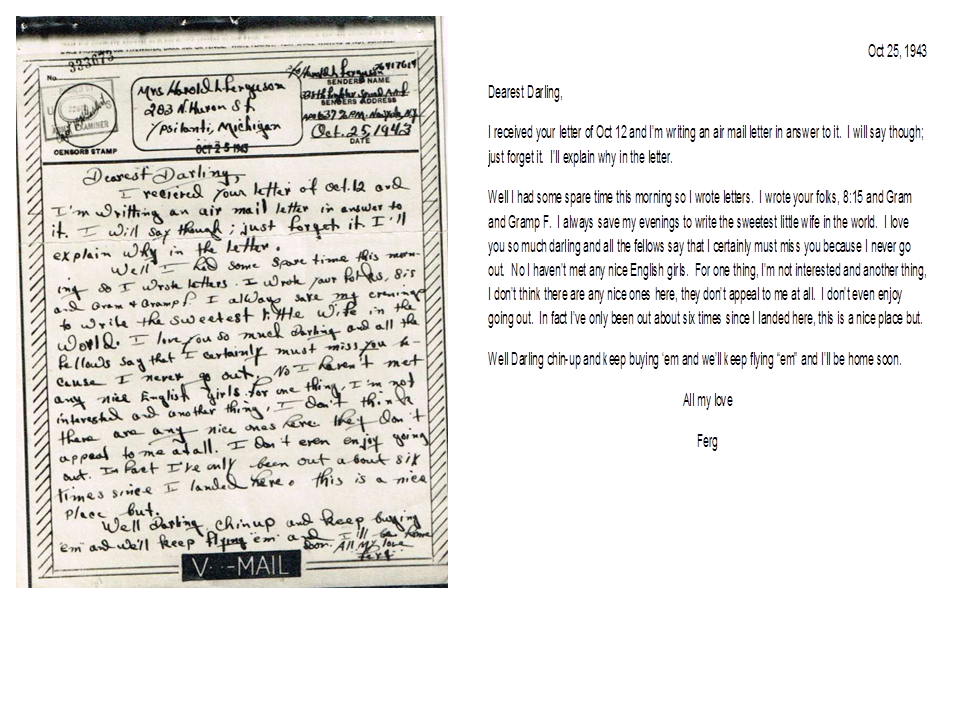 No.
333673
CENSORS STAMP
Mrs Harold L Ferguson
283 N. Huron St
Ypsilanti, Michigan
OCT 25 1943
Harold L Ferguson
SENDERS NAME
SENDERS ADDRESS
Oct. 25, 1943
DATE
Dearest Darling,
I recieved your letter of Oct. 12 and
I'm writting an air mail letter in answer to
it. I will say though; just forget it I'll
explain why in the letter.
Well I had some spare time this morn-
ing so I wrote letters. I wrote your folks, 8:15
and Gram & Gramp F I always save my evenings
to write the sweetest little wife in the
world. I love you so much darling and all the
fellows say that I certainly must miss you be-
cause I never go out. No I haven't met
any nice English girls. For one thing, I'm not
interested and another thing, I don't think
there are any nice ones here they don't
appeal to me at all. I don't even enjoy going
out. In fact I've only been out about six
times since I landed here. this is a nice
place but.
Well Darling chinup and keep buying
'em and we'll keep flying "em" and I'll be home
soon. All my love
Ferg
V···-MAIL
Oct 25, 1943
Dearest Darling,
I received your letter of Oct 12 and I'm writing an air mail letter in answer to it. I will say though;
just forget it. I'll explain why in the letter.
Well I had some spare time this morning so I wrote letters. I wrote your folks, 8:15 and Gram
and Gramp F. I always save my evenings to write the sweetest little wife in the world. I love
you so much darling and all the fellows say that I certainly must miss you because I never go
out. No I haven't met any nice English girls. For one thing, I'm not interested and another thing,
I don't think there are any nice ones here, they don't appeal to me at all. I don't even enjoy
going out. In fact I've only been out about six times since I landed here, this is a nice place but.
Well Darling chin-up and keep buying 'em and we'll keep flying "em" and I'll be home soon.
All my love
Ferg